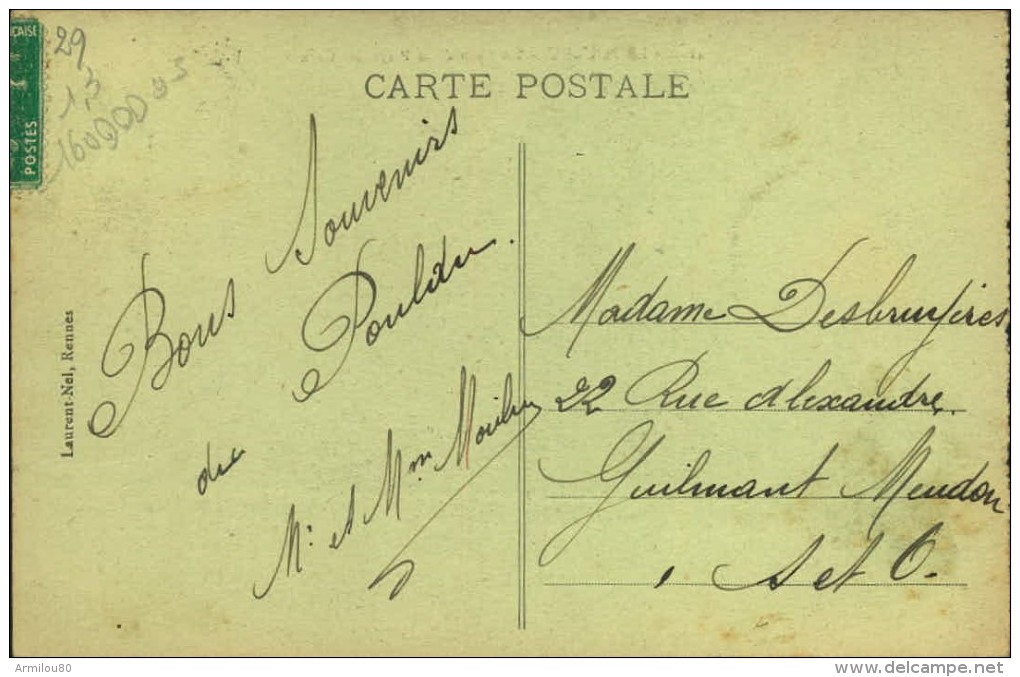 ÇAISE
POSTES
29
1,3
CARTE POSTALE
Bons Souvenirs
du Pouldu.
Mr et Mme
Laurent-Nel, Rennes
Madame Desbruyères
22 Rue Alexandre
Guilmant Meudon
S et O.
Armilou80
www.delcampe.net